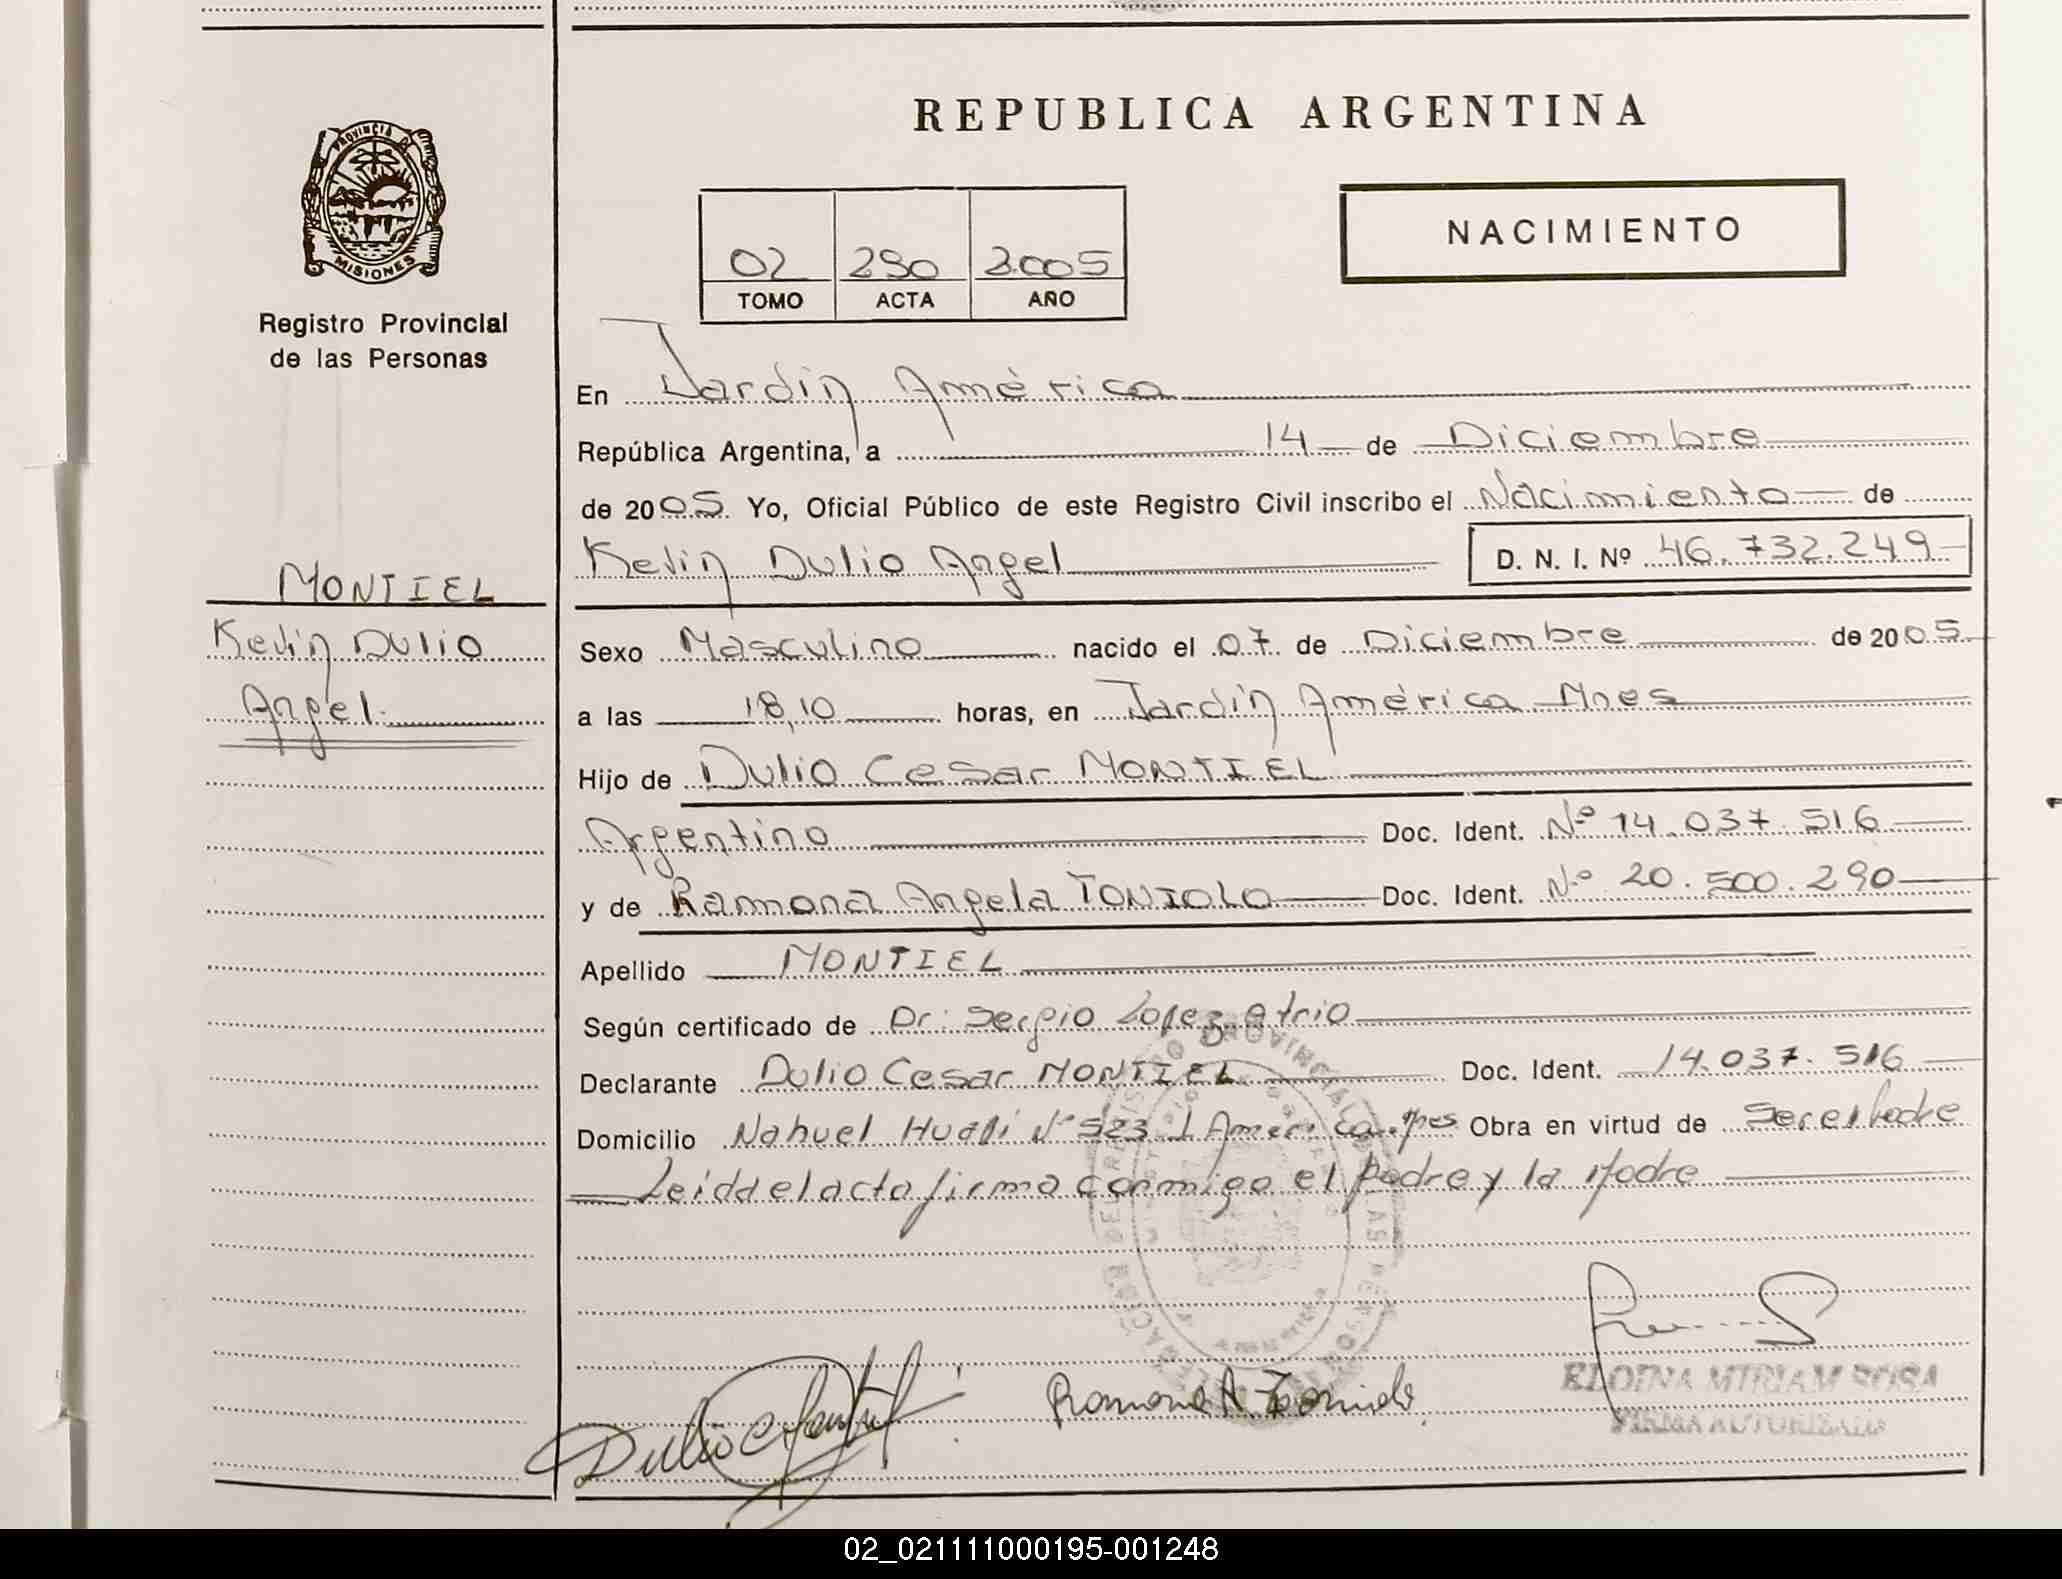 REPUBLICA ARGENTINA
PROVINCIA DE
MISIONES
Registro Provincial
de las Personas
NACIMIENTO
02 290 2005
TOMO ACTA AÑO
En Jardín América
República Argentina, a 14 de Diciembre
de 2005 Yo, Oficial Público de este Registro Civil inscribo el Nacimiento de
Kevin Dulio Angel D. N. I. Nº 46.732.249
MONTIEL
Kevin Dulio
Angel
Sexo Masculino nacido el 07 de Diciembre de 2005
a las 18,10 horas, en Jardín América Mnes
Hijo de Dulio Cesar MONTIEL
Argentino Doc. Ident. Nº 14.037.516
y de Ramona Angela TONIOLO Doc. Ident. Nº 20.500.290
Apellido MONTIEL
Según certificado de Dr: Sergio Lopez Atrio
Declarante Dulio Cesar MONTIEL Doc. Ident. 14.037.516
Domicilio Nahuel Huapi Nº 523 J America Mnes Obra en virtud de ser el padre
Leida el acta firma conmigo el padre y la Madre
Ramona A Toniolo
ELOINA MIRIAM ROSA
FIRMA AUTORIZADA
02_021111000195-001248